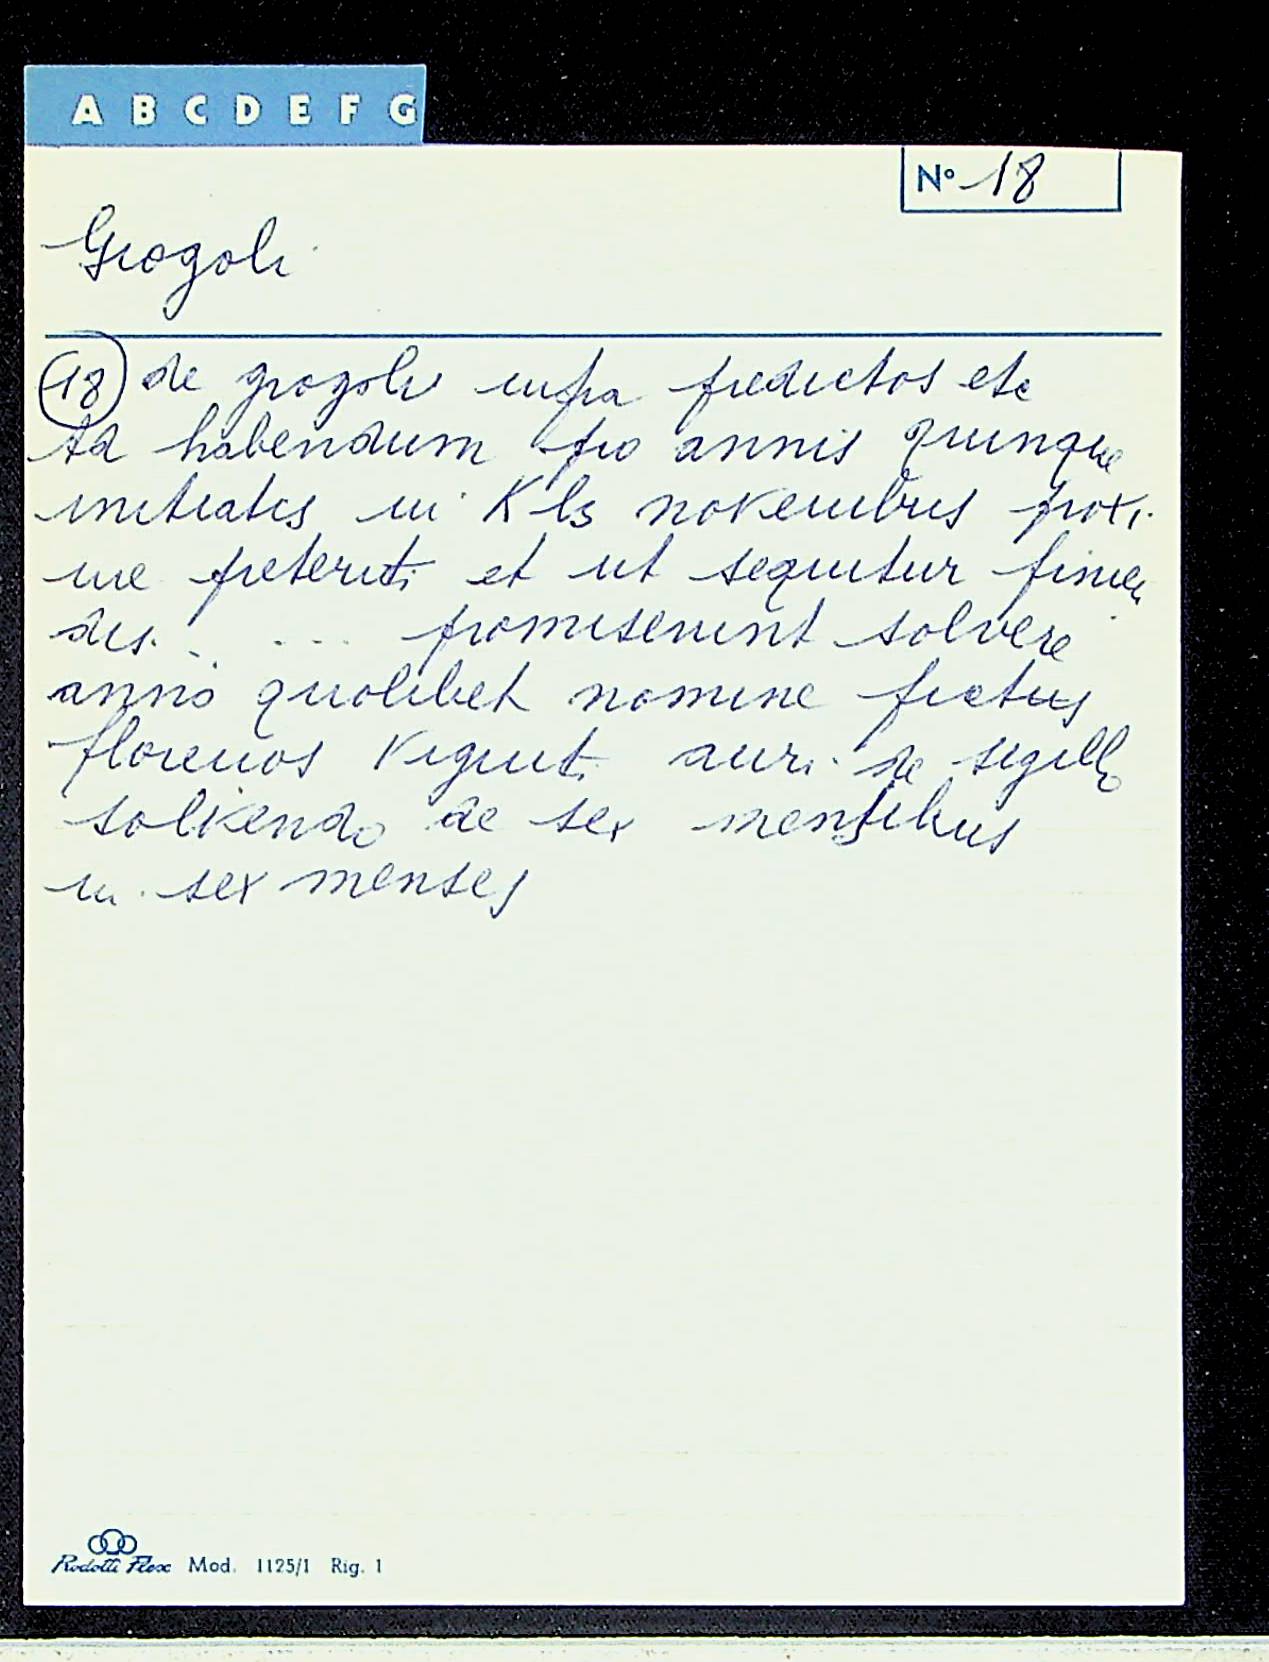 A B C D E F G
Nº 18
Grogoli
18 de grogoli infra predictos etc
Ad habendum pro annis quinque
initiatis in Kls novembris proxi
me preteriti et ut sequitur finien
dis. . ... promiserunt solvere
anno quolibet nomine fictus
florenos viginti auri de sigillo
solvendo de sex mensibus
in sex menses
Rodotti Flex Mod. 1125/1 Rig. 1